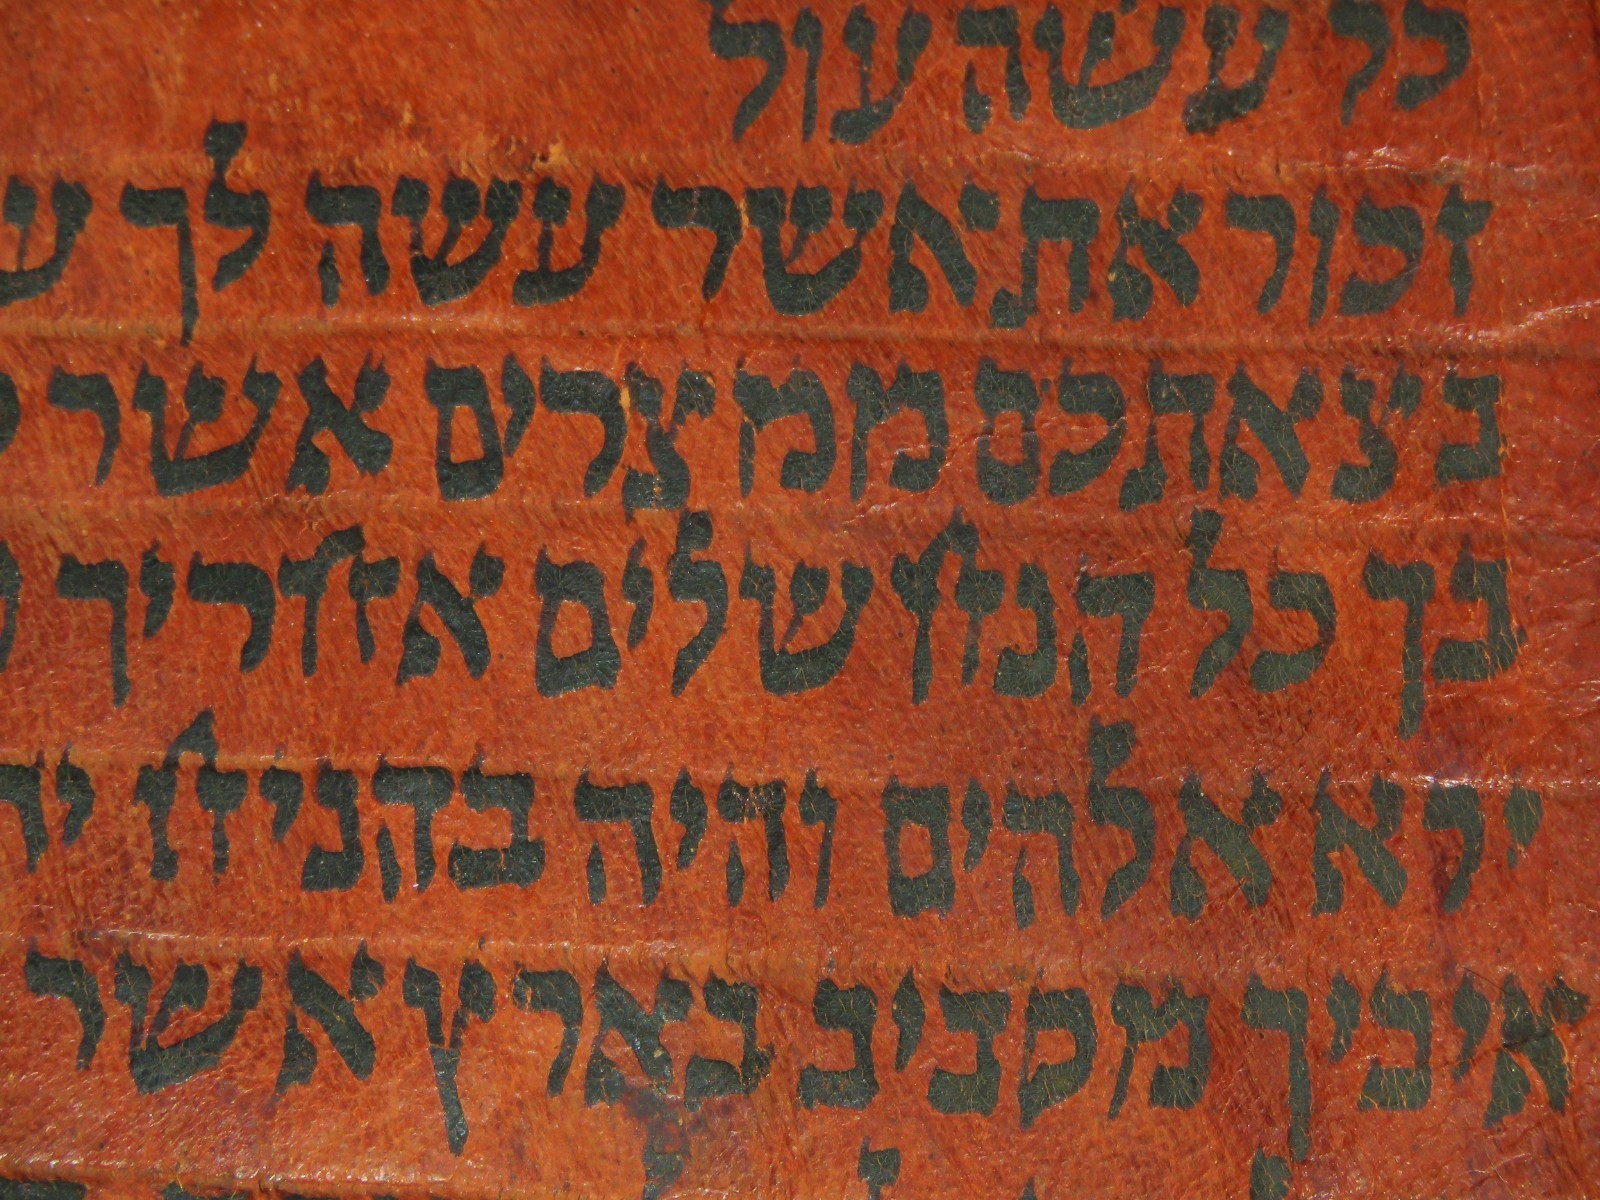 כל עשה עול
זכור את אשר עשה לך
בצאתכם ממצרים אשר
בך כל הנחשלים אחריך
ירא אלהים והיה בהניח
איביך מסביב בארץ אשר